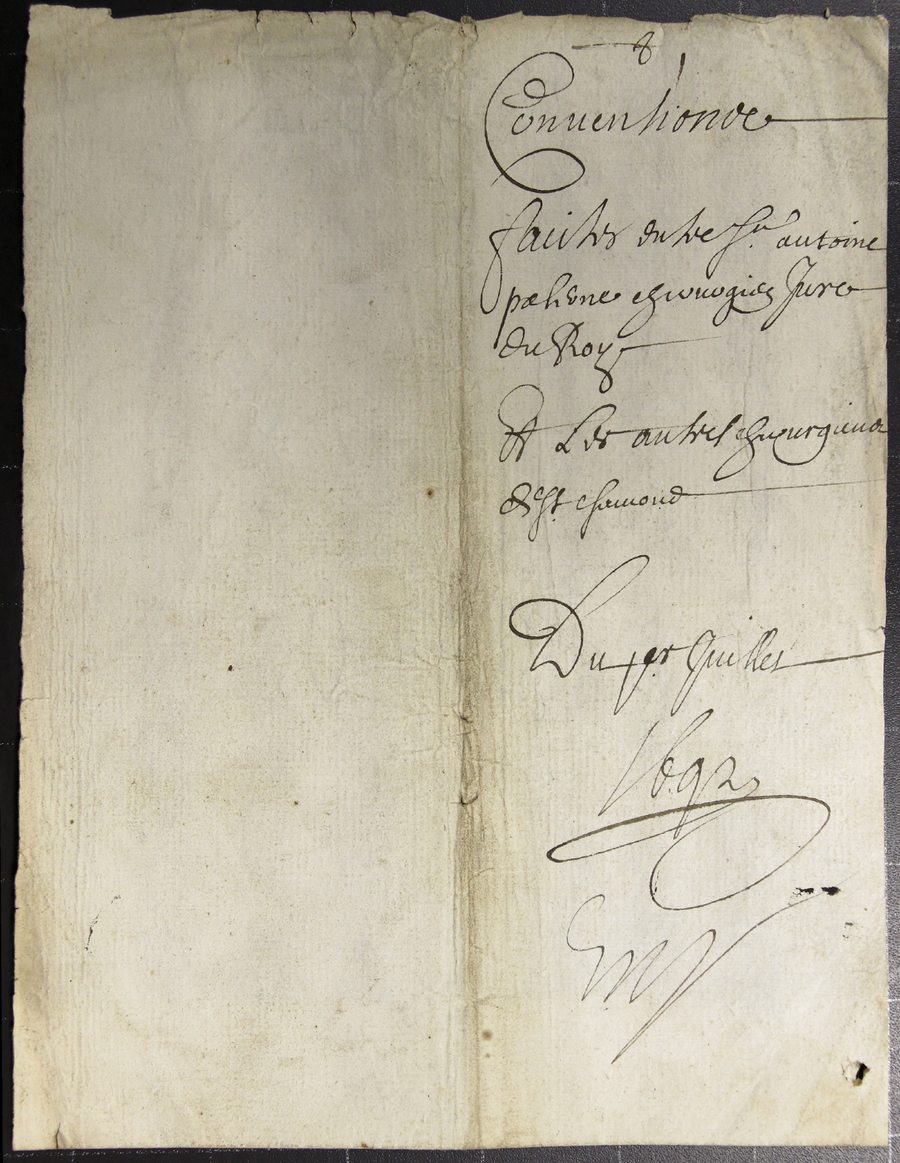 8
Conuentions
faictes entre Sr. antoine
chirurgien Jure
du Roy
Et Les autres chirurgiens
de St. chamond
Du per. Juillet
1692